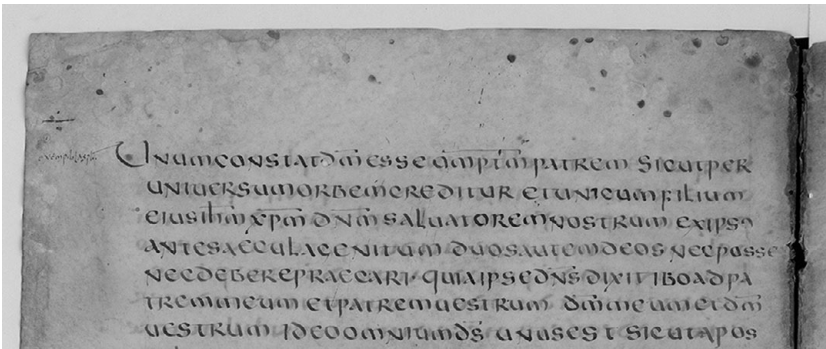 UNUMCONSTATDM̄ESSE OMPTM̄PATREM SICUTPER
UNIUERSUMORBEMCREDITUR ETUNICUMFILIUM
EIUSIHM̄ XPM̄ DNM̄ SALUATOREMNOSTRUM EXIPSO
ANTESAECULAGENITUM DUOSAUTEMDEOS NECPOSSE
NECDEBEREPRAECARI· QUIAIPSEDNS̄DIXITIBOADPA
TREMMEUM ETPATREMUESTRUM DM̄MEUMETDM̄
UESTRUM IDEOOMNIUMDS̄ UNUSEST SICUTAPOS